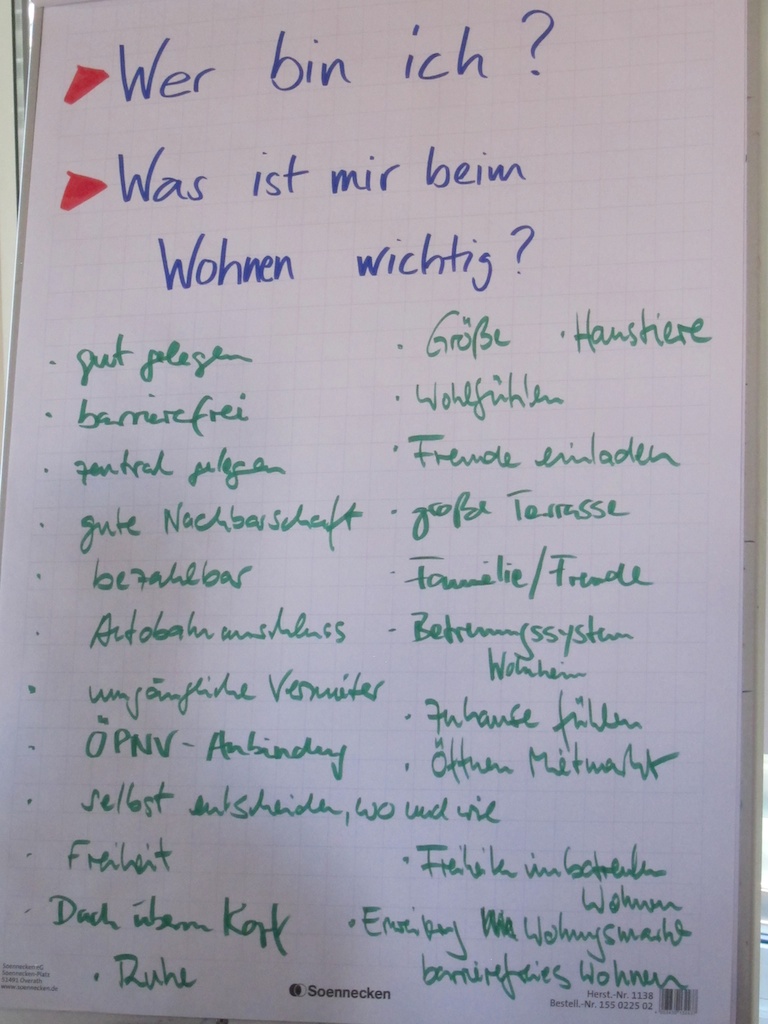 Wer bin ich?
Was ist mir beim
Wohnen wichtig?
· gut gelegen
· barrierefrei
· zentral gelegen
· gute Nachbarschaft
· bezahlbar
· Autobahnanschluss
· umgängliche Vermieter
· ÖPNV-Anbindung
· selbst entscheiden, wo und wie
· Freiheit
· Dach überm Kopf
· Ruhe
· Größe · Haustiere
· Wohlfühlen
· Freunde einladen
· große Terrasse
· Familie/Freunde
- Betreuungssystem
Wohnheim
· Zuhause fühlen
· Öffnen Mietmarkt
· Freiheiten im betreuten
Wohnen
· Erweiterung Wohnungsmarkt
barrierefreies Wohnen
Soennecken eG
Soennecken-Platz
51491 Overath
www.soennecken.de
Soennecken
Herst.-Nr. 1138
Bestell.-Nr. 155 0225 02